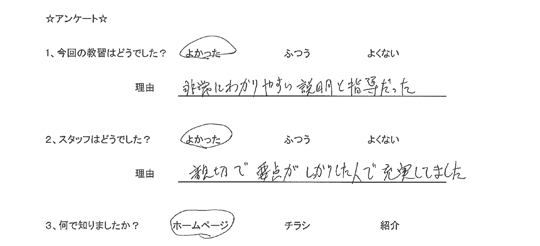 ☆アンケート☆
1、今回の教習はどうでした? よかった ふつう よくない
理由 非常にわかりやすい説明と指導だった
2、スタッフはどうでした? よかった ふつう よくない
理由 親切で要点がしっかりした人で充実してました
3、何で知りましたか? ホームページ チラシ 紹介